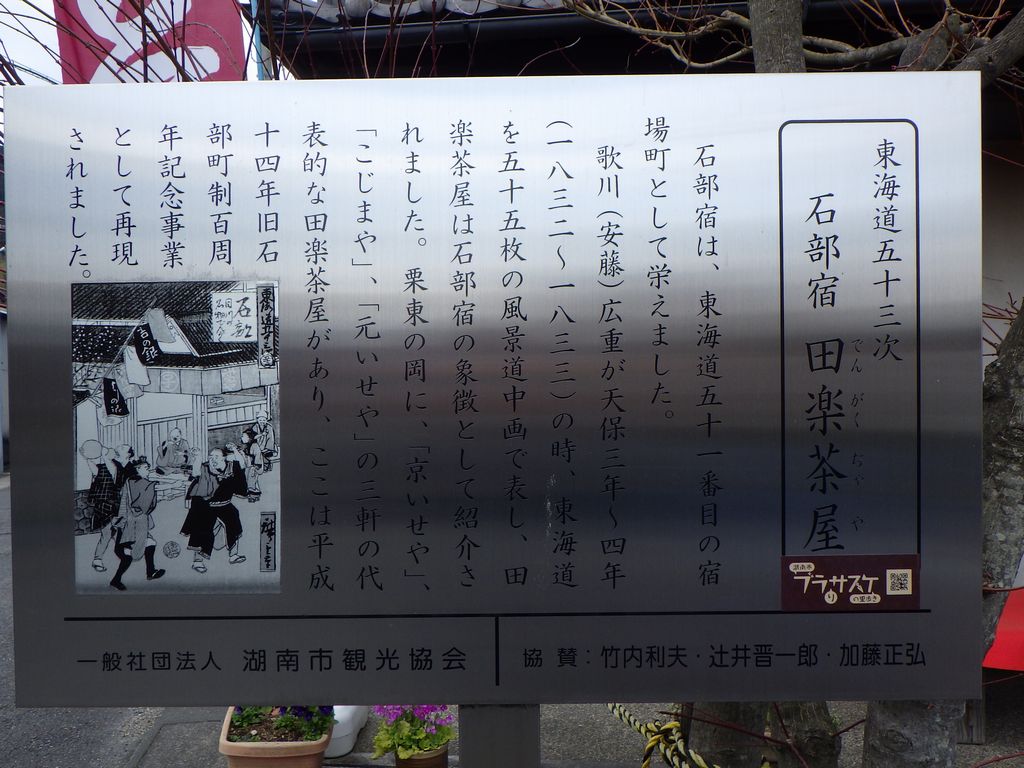 東海道五十三次
石部宿 田楽茶屋
でん がく ぢゃ や
石部宿は、東海道五十一番目の宿
場町として栄えました。
歌川(安藤)広重が天保三年～四年
(一八三二～一八三三)の時、東海道
を五十五枚の風景道中画で表し、田
楽茶屋は石部宿の象徴として紹介さ
れました。栗東の岡に、「京いせや」、
「こじまや」、「元いせや」の三軒の代
表的な田楽茶屋があり、ここは平成
十四年旧石
部町制百周
年記念事業
として再現
されました。
石部
湖南市
ブラサスケ
り
の里歩き
協賛:竹内利夫・辻井晋一郎・加藤正弘
一般社団法人 湖南市観光協会